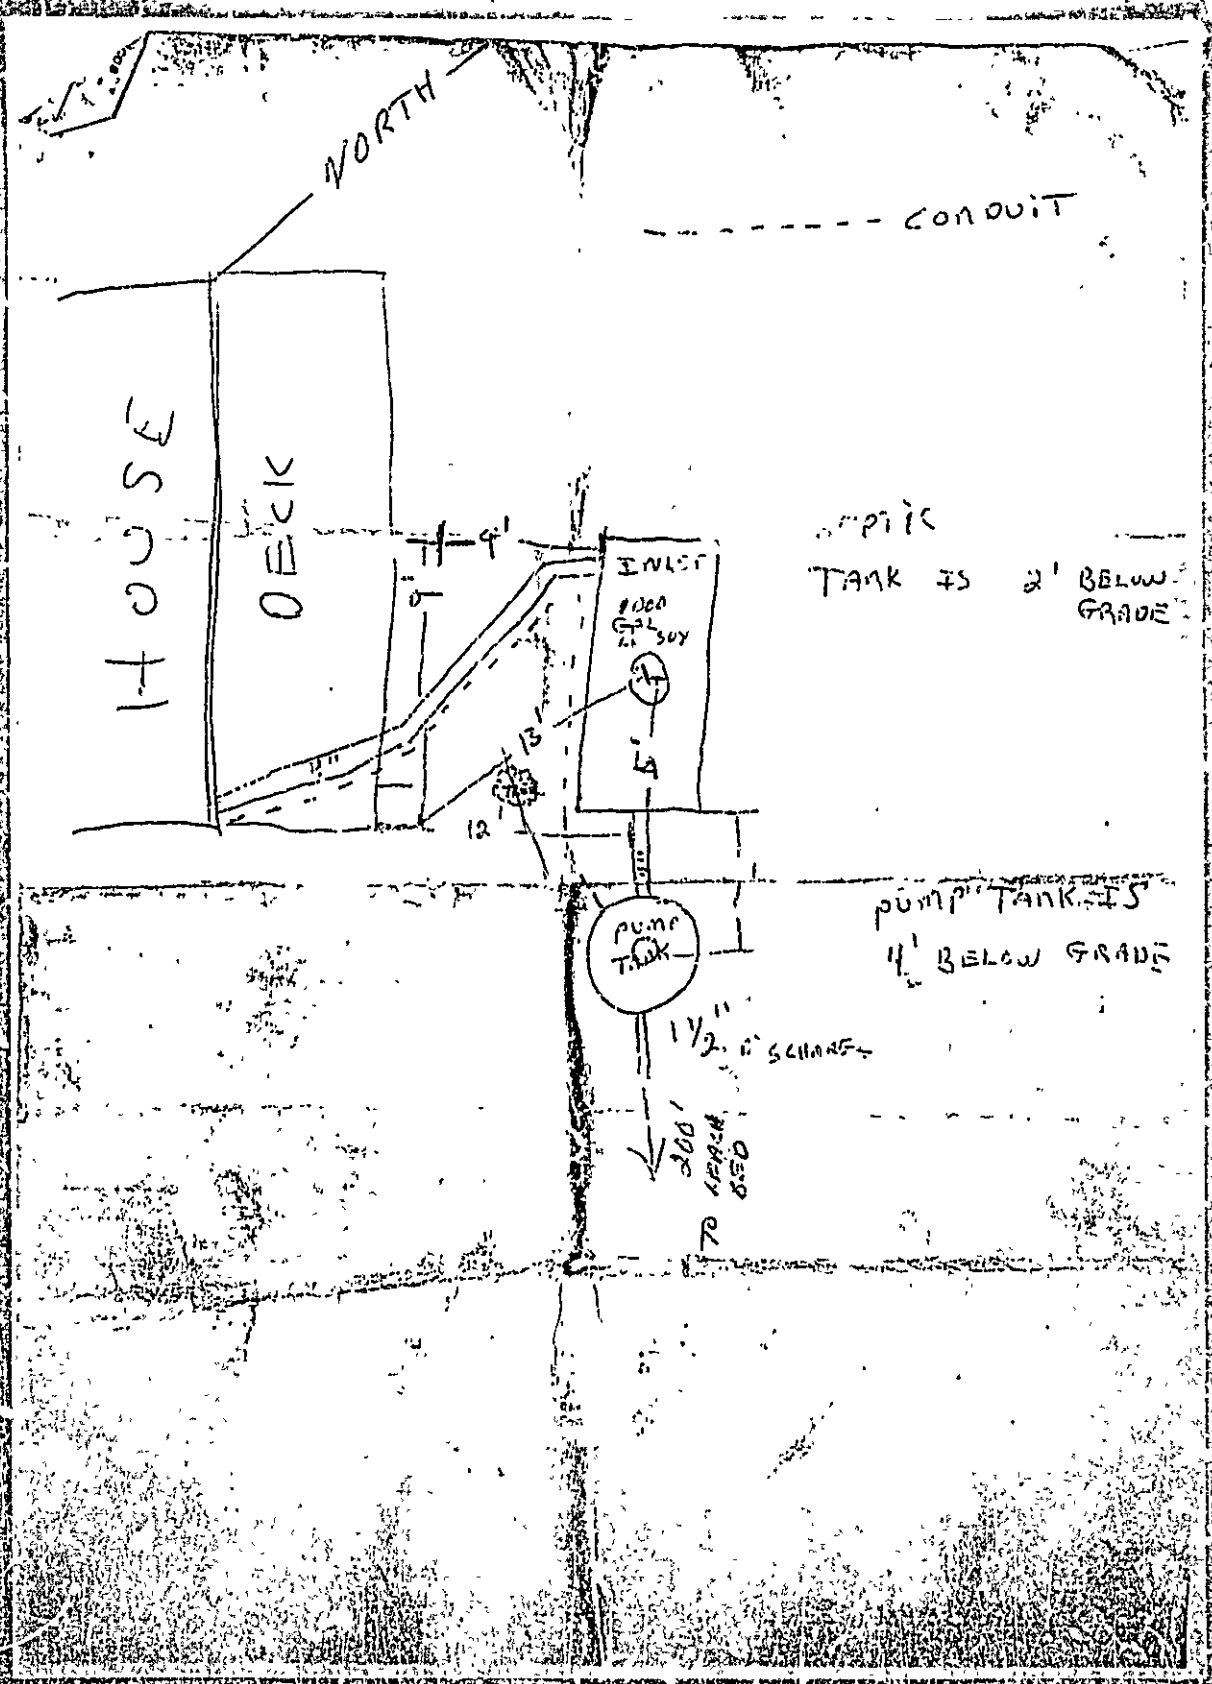 NORTH
CONDUIT
HOUSE
DECK
9'
9'
INLET
1000
GAL
TANK IS 2' BELOW
GRADE
4"
13'
12'
PUMP
TANK
PUMP TANK IS
4' BELOW GRADE
1 1/2"
200'
TO LEACH
BED